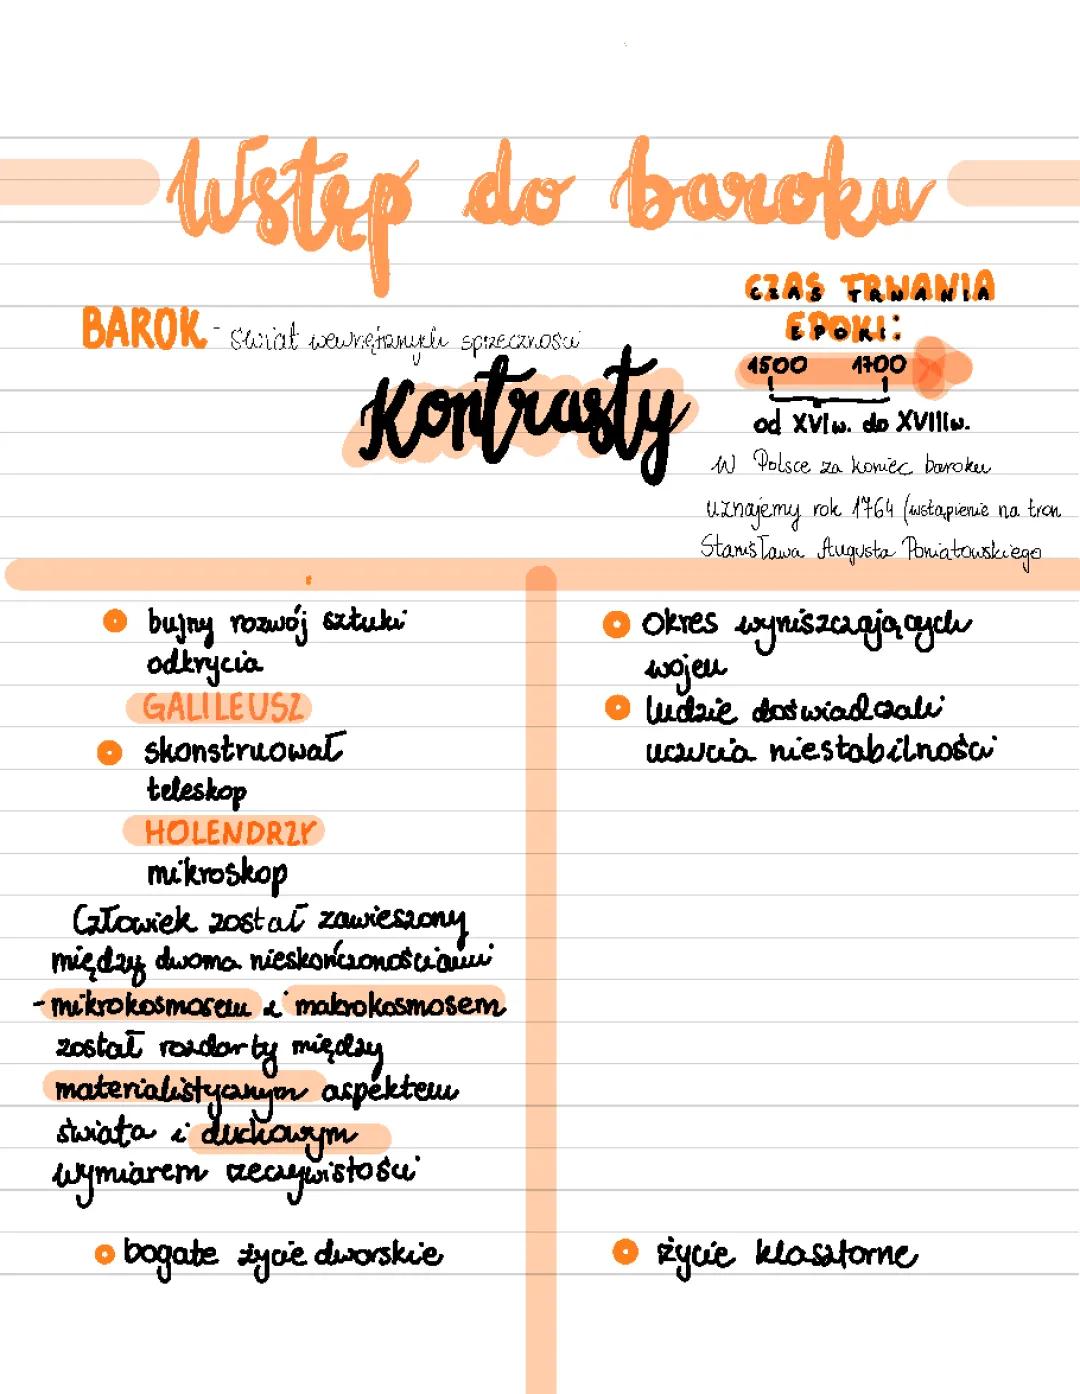 Wstęp do baroku
BAROK - świat wewnętrznych sprzeczności
Kontrasty
CZAS TRWANIA
EPOKI:
1500 1700
od XVI w. do XVIII w.
W Polsce za koniec baroku
uznajemy rok 1764 (wstąpienie na tron
Stanisława Augusta Poniatowskiego
bujny rozwój sztuki
odkrycia
GALILEUSZ
skonstruował
teleskop
HOLENDRZY
mikroskop
Człowiek został zawieszony
między dwoma nieskończonościami
- mikrokosmosem i makrokosmosem
został rozdarty między
materialistycznym aspektem
świata i duchowym
wymiarem rzeczywistości
bogate życie dworskie
Okres wyniszczających
wojen
ludzie doświadczali
uczucia niestabilności
życie klasztorne